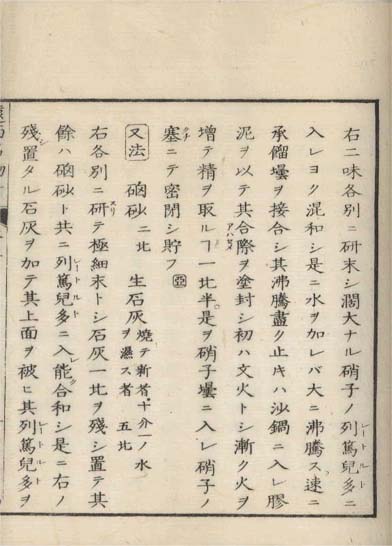 右二味各別ニ研末シ濶大ナル硝子ノ列篤兒多ニ
入レヨク混和シ是ニ水ヲ加レバ大ニ沸騰ス速ニ
承餾壜ヲ接合シ其沸騰盡ク止キハ沙鍋ニ入レ膠
泥ヲ以テ其合際ヲ塗封シ初ハ文火トシ漸ク火ヲ
増テ精ヲ取ルヿ一比半是ヲ硝子壜ニ入レ硝子ノ
塞ニテ密閉シ貯フ 亞
又法 硇砂二比 生石灰 燒テ新者十分一ノ水ヲ濕ス者 五比
右各別ニ研テ極細末トシ石灰一比ヲ残シ置テ其
餘ハ硇砂ト共ニ列篤兒多ニ入能合和シ是ニ右ノ
残置タル石灰ヲ加テ其上面ヲ被ヒ其列篤兒多ヲ